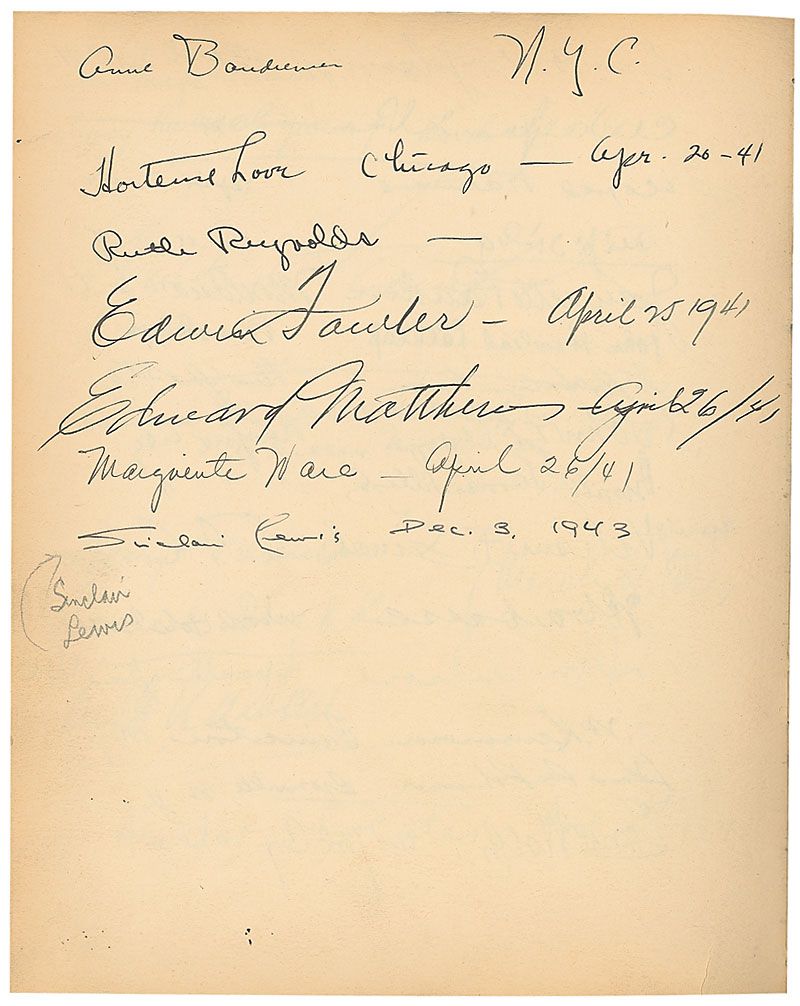 Anne N.Y.C.
Hortense Love Chicago — Apr. 20-41
Ruth Reynolds —
Edwin Fowler — April 25 1941
Edward Matthews — April 26/41
Marguerite Ware — April 26/41
Sinclair Lewis Dec. 3, 1943
Sinclair
Lewis